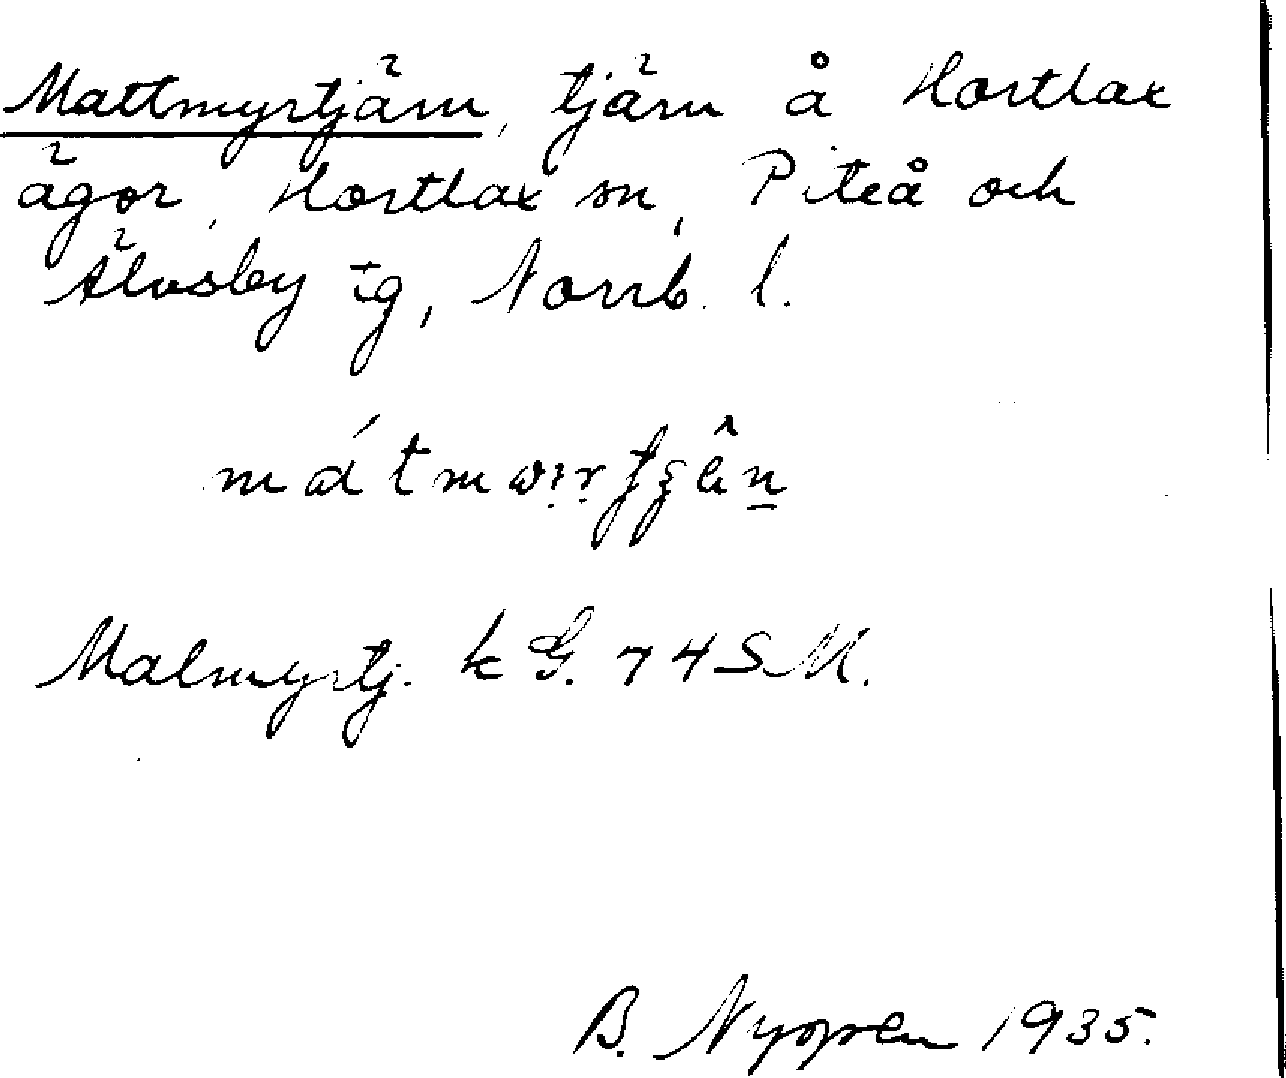 Mattmyrtjärn, tjärn å Hortlax
ägor, Hortlax sn, Piteå och
Älvsby tg, Norrb. l.
Malmyrtj. k G. 74 SM.
B. Nygren 1935.